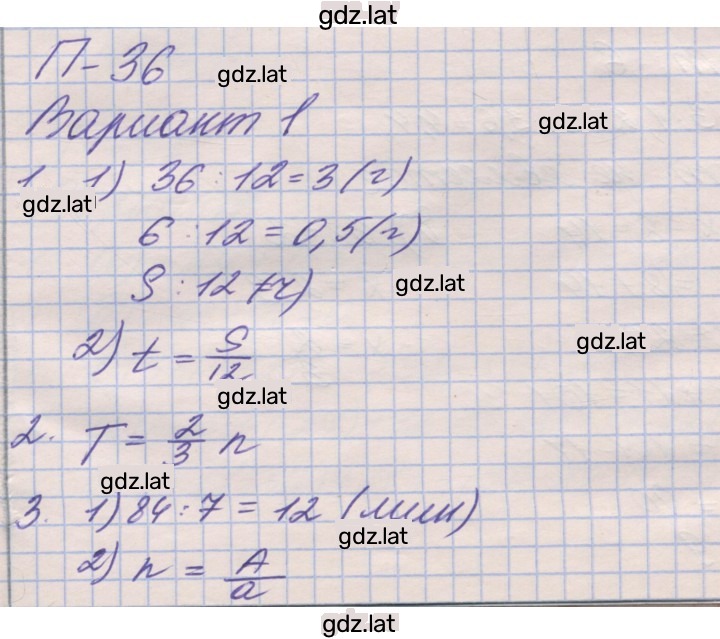 gdz.lat
П-36
gdz.lat
Вариант 1
gdz.lat
1 1) 36 : 12 = 3 (ч)
gdz.lat
6 : 12 = 0,5 (ч)
S : 12 (ч)
gdz.lat
2) t = S/12
gdz.lat
gdz.lat
2. T = 2/3 n
gdz.lat
3. 1) 84 : 7 = 12 (мин)
gdz.lat
2) n = A/a
gdz.lat